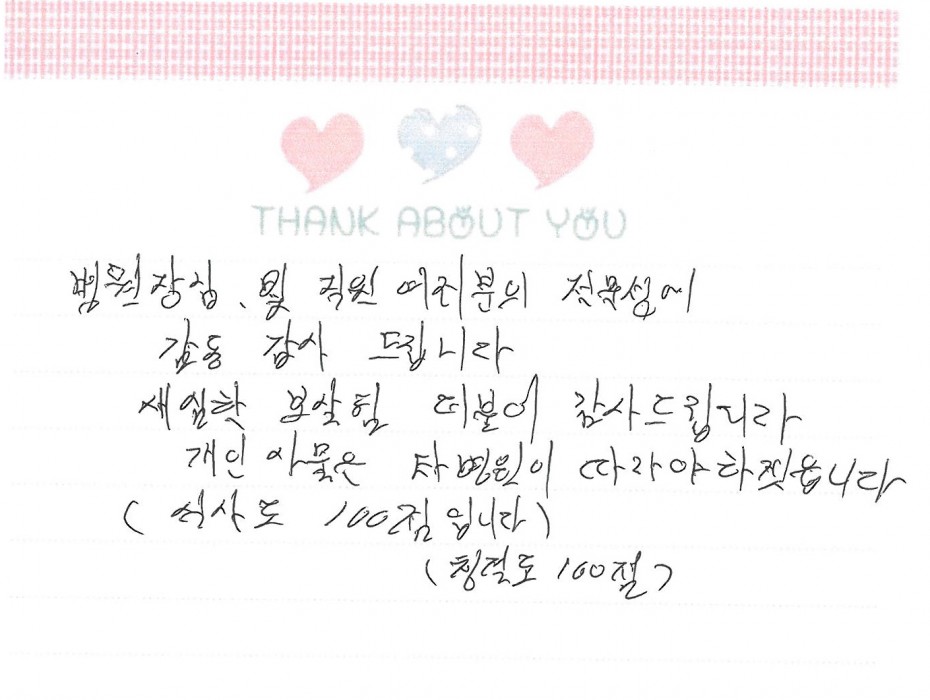 THANK ABOUT YOU
병원장님, 및 직원 여러분의 전문성에
감동 감사 드립니다
세심한 보살핌 더불어 감사드립니다
개인 사물은 타병원이 따라야하겟읍니다
(식사도 100점입니다)
(친절도 100점)